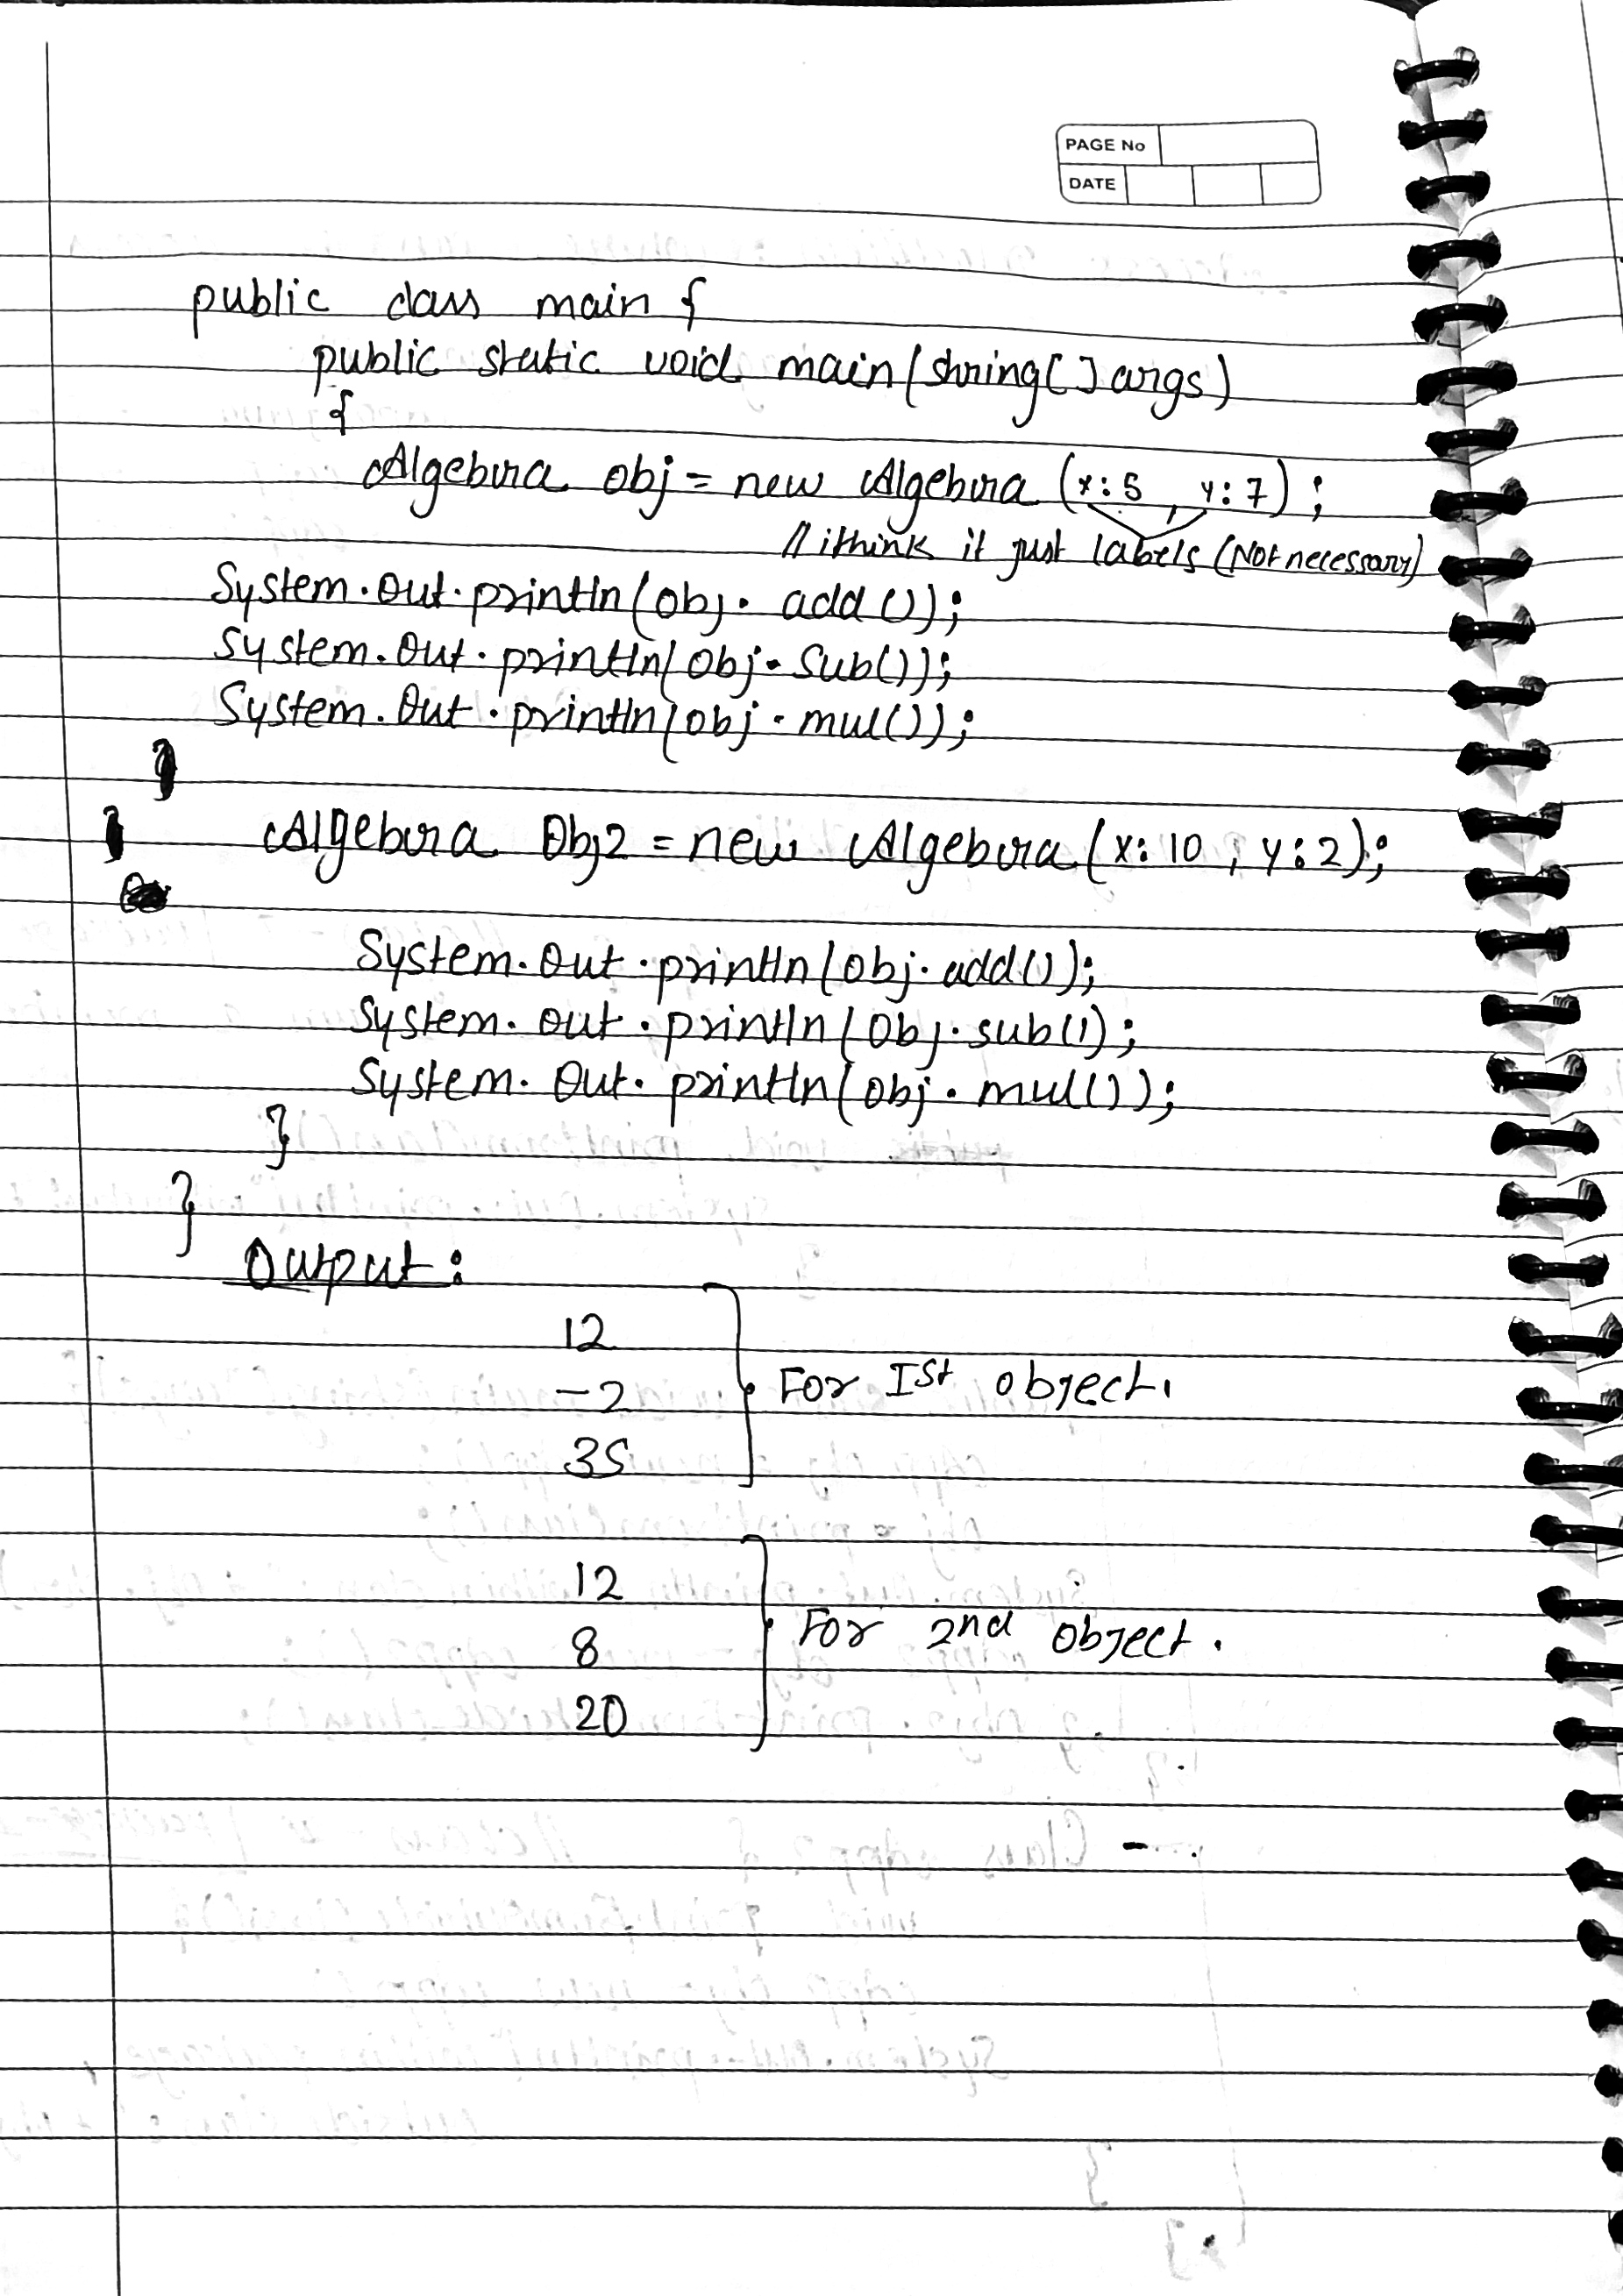 PAGE No
DATE
public class main {
public static void main(string[] args)
{
Algebra obj = new Algebra (x:5, y:7);
// i think it just labels (Not necessary)
System.out.println(obj. add());
System.out.println(obj.sub());
System.out.println(obj.mul());
}
}
Algebra Obj2 = new Algebra(x:10, y:2);
System.out.println(obj.add());
System.out.println(obj.sub());
System.out.println(obj.mul());
}
}
Output:
12
-2
35
For Ist object.
12
8
20
For 2nd object.